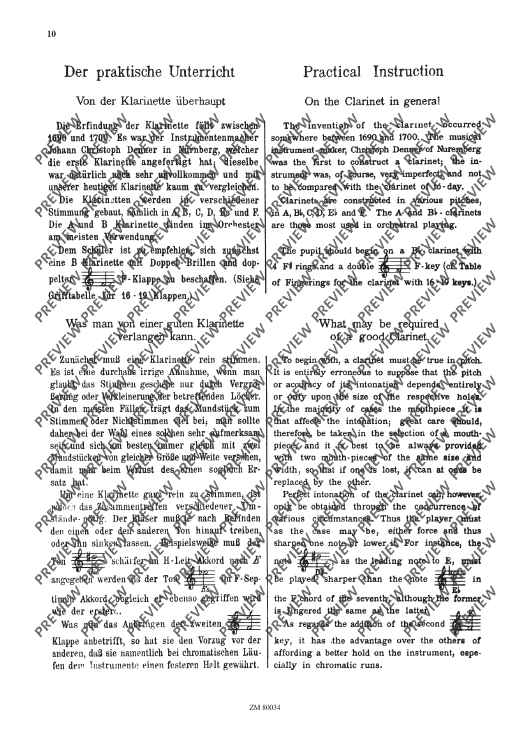 10
Der praktische Unterricht
Von der Klarinette überhaupt
Die Erfindung der Klarinette fällt zwischen
1690 und 1700. Es war der Instrumentenmacher
Johann Christoph Denner in Nürnberg, welcher
die erste Klarinette angefertigt hat; dieselbe
war natürlich noch sehr unvollkommen und mit
unserer heutigen Klarinette kaum zu vergleichen.
Die Klarinetten werden in verschiedener
Stimmung gebaut, nämlich in A, B, C, D, Es und F.
Die A und B Klarinette finden im Orchester
am meisten Verwendung.
Dem Schüler ist zu empfehlen, sich zunächst
eine B Klarinette mit Doppel-Brillen und dop-
pelter F-Klappe zu beschaffen. (Siehe
Grifftabelle für 16 - 19 Klappen.)
Was man von einer guten Klarinette
verlangen kann.
Zunächst muß eine Klarinette rein stimmen.
Es ist eine durchaus irrige Annahme, wenn man
glaubt, das Stimmen geschehe nur durch Vergrö-
ßerung oder Verkleinerung der betreffenden Löcher.
In den meisten Fällen trägt das Mundstück zum
Stimmen oder Nichtstimmen viel bei; man sollte
daher bei der Wahl eines solchen sehr aufmerksam
sein und sich am besten immer gleich mit zwei
Mundstücken von gleicher Größe und Weite versehen,
damit man beim Verlust des einen sogleich Er-
satz hat.
Um eine Klarinette ganz rein zu stimmen, ist
das Zusammentreffen verschiedener Um-
stände nötig. Der Bläser muß je nach Befinden
den einen oder den anderen Ton hinauf treiben,
oder ihn sinken lassen. Beispielsweise muß der
Ton schärfer im H-Leit-Akkord nach E
angegeben werden als der Ton im F-Sep-
timen Akkord, obgleich er ebenso gegriffen wird
wie der erstere.
Was nun das Anbringen der zweiten
Klappe anbetrifft, so hat sie den Vorzug vor der
anderen, daß sie namentlich bei chromatischen Läu-
fen dem Instrumente einen festeren Halt gewährt.
Practical Instruction
On the Clarinet in general
The invention of the clarinet occurred
somewhere between 1690 and 1700. The musical
instrument-maker, Christoph Denner of Nuremberg
was the first to construct a clarinet; the in-
strument was, of course, very imperfect, and not
to be compared with the clarinet of to-day.
Clarinets are constructed in various pitches,
in A, B♭, C, D, E♭ and F. The A and B♭ - clarinets
are those most used in orchestral playing.
The pupil should begin on a B♭ clarinet with
4 F♯ rings and a double F-key (cf. Table
of Fingerings for the clarinet with 16 - 19 keys.)
What may be required
of a good Clarinet.
To begin with, a clarinet must be true in pitch.
It is entirely erroneous to suppose that the pitch
or accuracy of its intonation depends entirely
or only upon the size of the respective holes.
In the majority of cases the mouthpiece it is
that affects the intonation; great care should,
therefore, be taken in the selection of a mouth-
piece; and it is best to be always provided
with two mouth-pieces of the same size and
width, so that if one is lost, it can at once be
replaced by the other.
Perfect intonation of the clarinet can, however,
only be obtained through the concurrence of
various circumstances. Thus the player must
as the case may be, either force and thus
sharpen one note or lower it. For instance, the
note as the leading note to E, must
be played sharper than the note in
the F chord of the seventh, although the former
is fingered the same as the latter.
As regards the addition of the second
key, it has the advantage over the others of
affording a better hold on the instrument, espe-
cially in chromatic runs.
ZM 80034